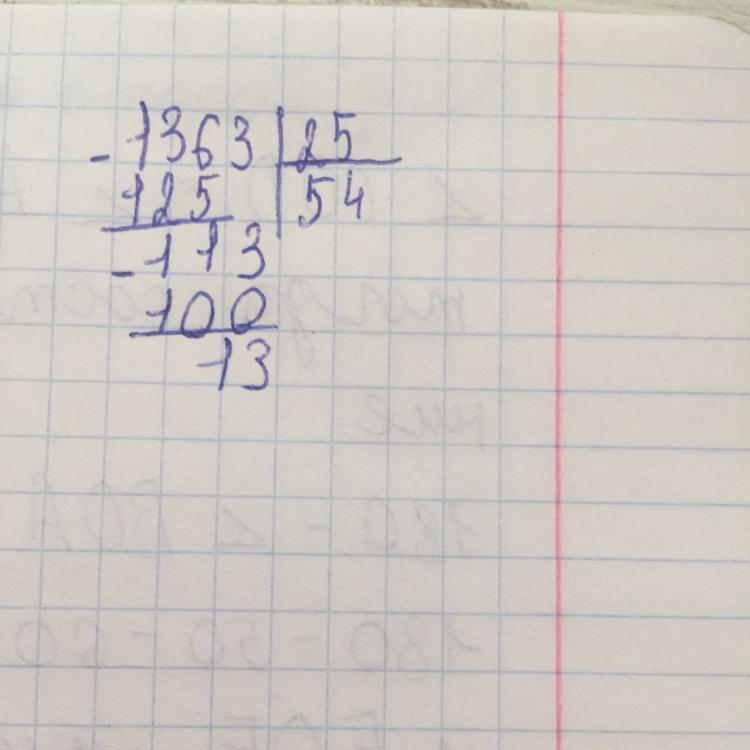 - 1363 | 25
125 | 54
- 113
100
13